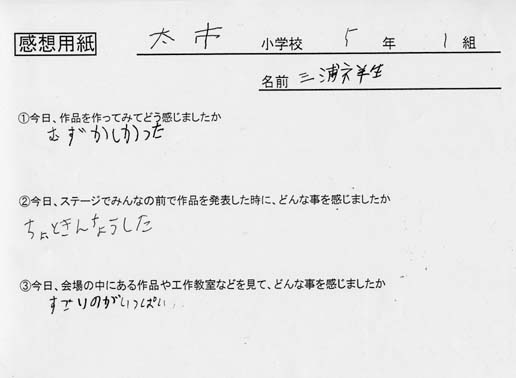 感想用紙
太市 小学校 5 年 1 組
名前 三浦祥生
①今日、作品を作ってみてどう感じましたか
むずかしかった
②今日、ステージでみんなの前で作品を発表した時に、どんな事を感じましたか
ちょときんちょうした
③今日、会場の中にある作品や工作教室などを見て、どんな事を感じましたか
すごいのがいっぱい...